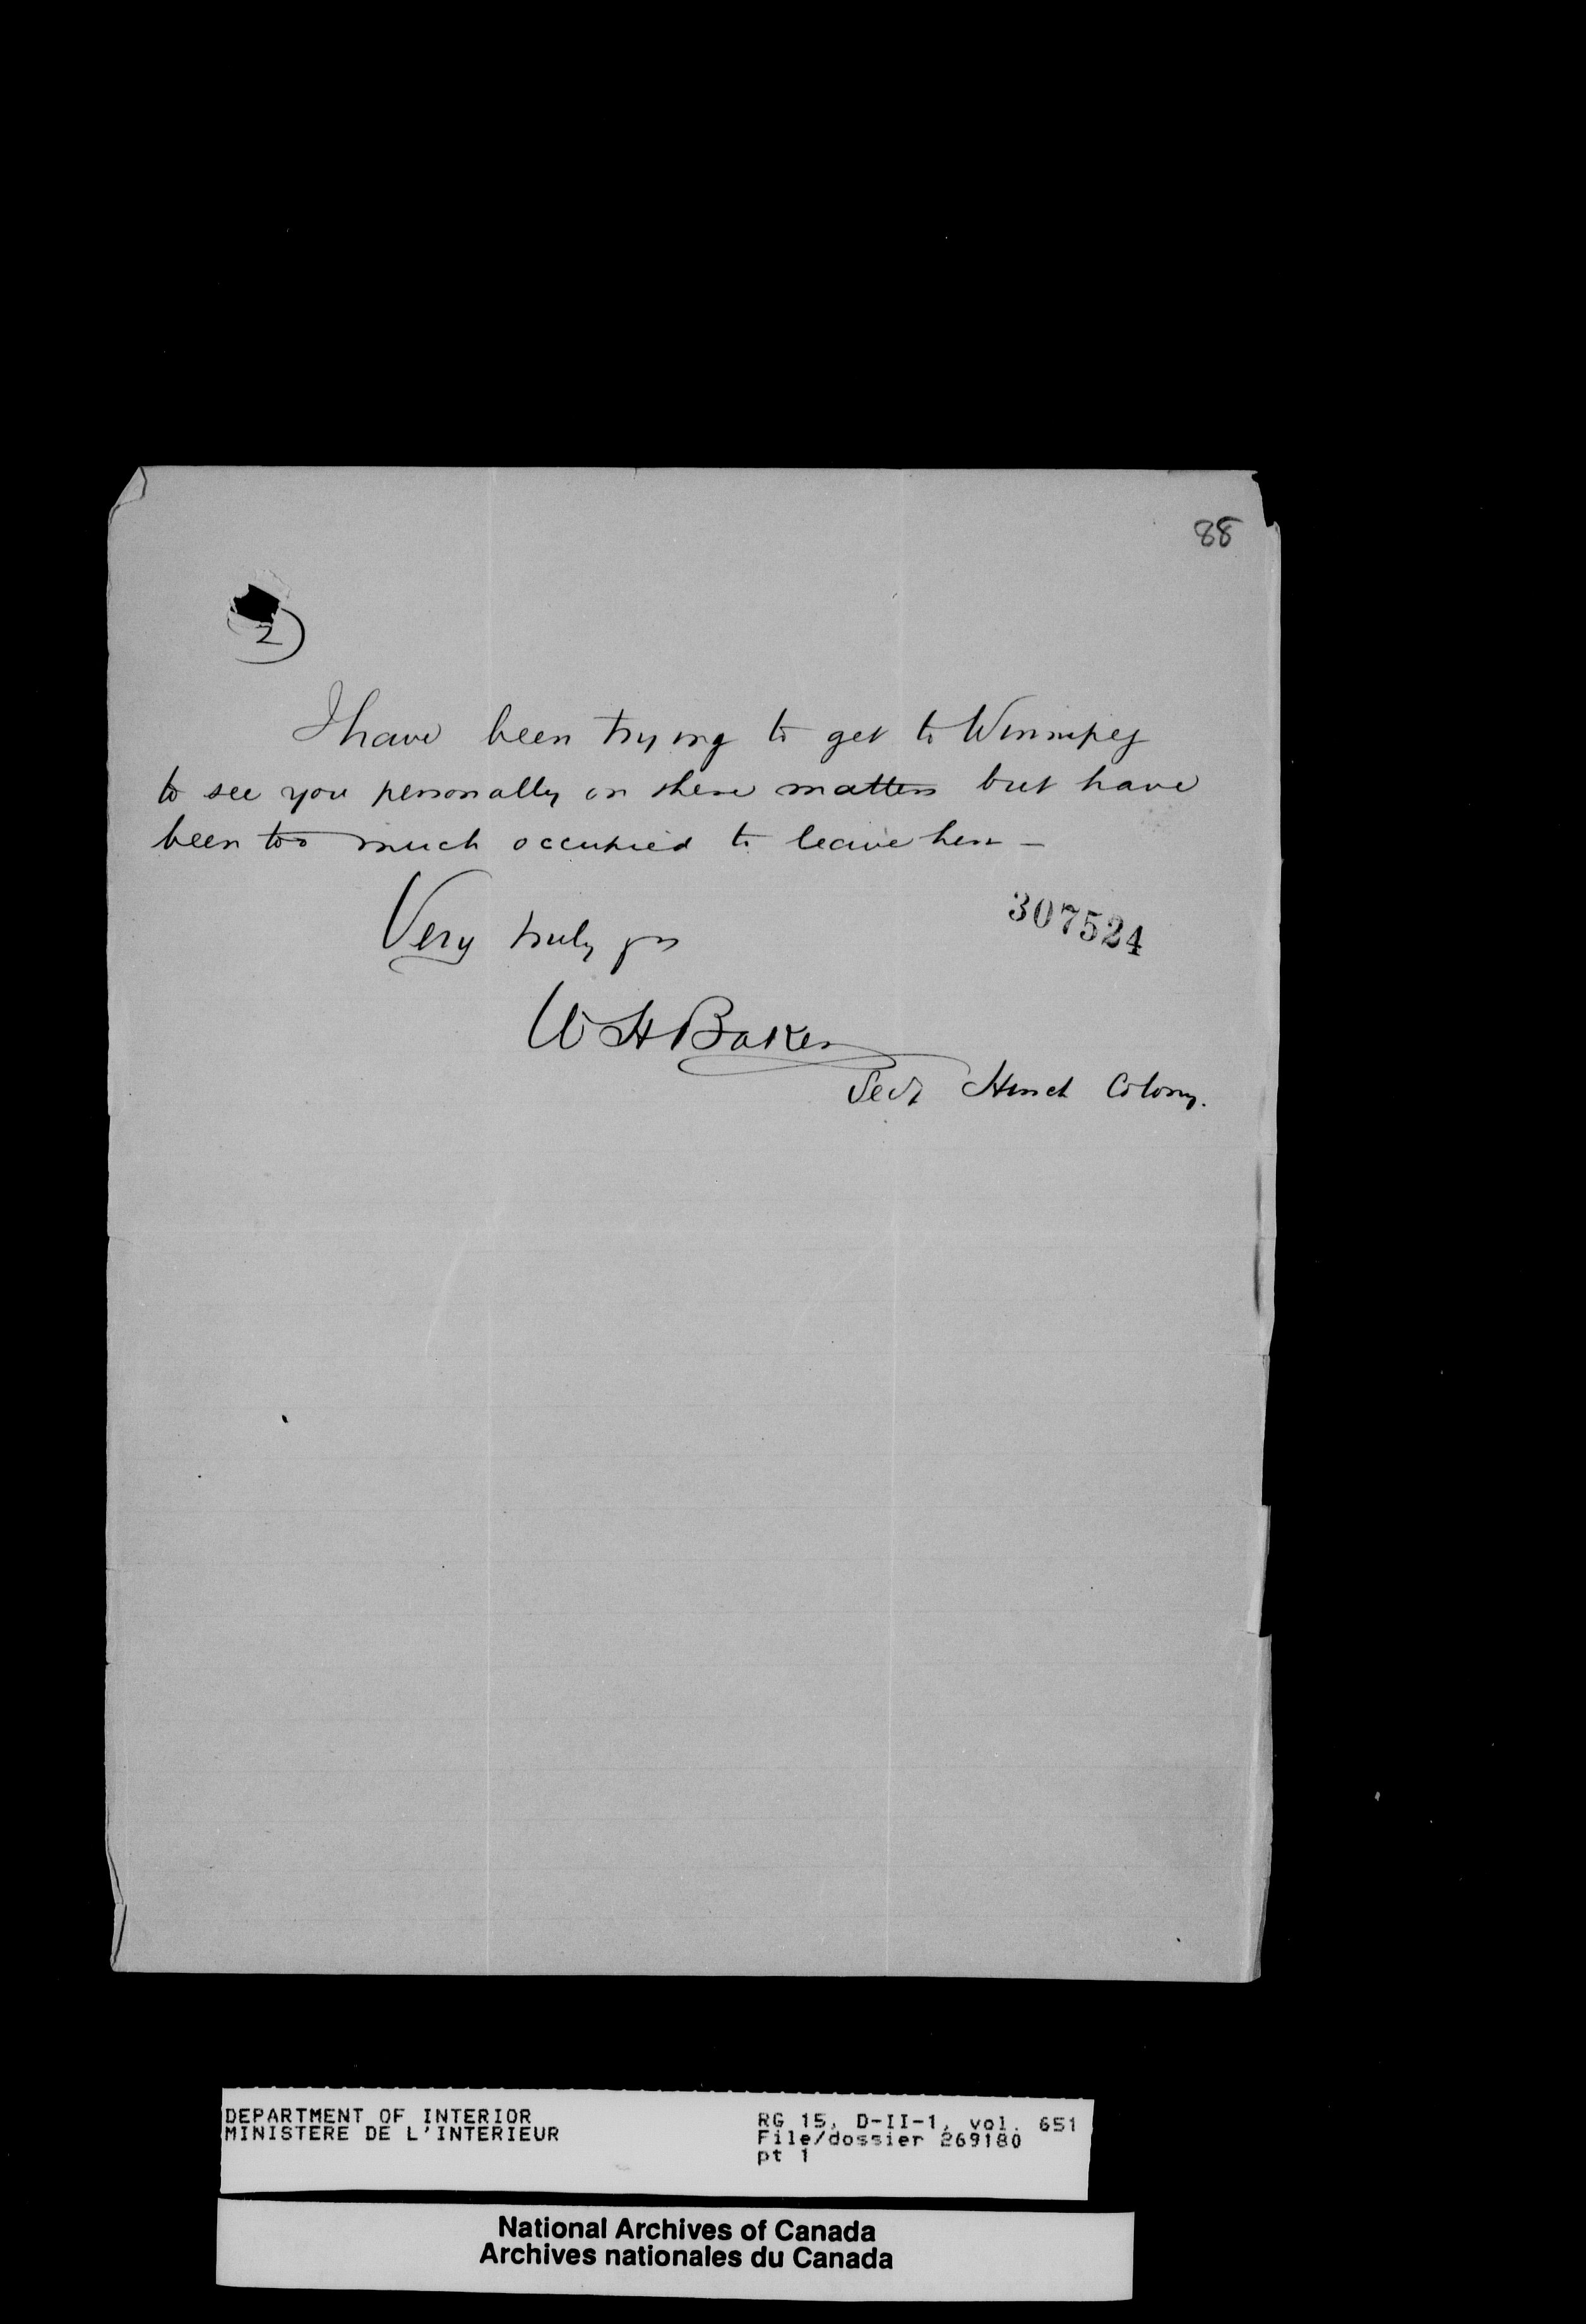 88
2
I have been trying to get to Winnipeg
to see you personally on these matters but have
been too much occupied to leave here —
Very truly yrs
W H Baker
Secy Hirsch Colony.
307524
DEPARTMENT OF INTERIOR
MINISTERE DE L'INTERIEUR
RG 15, D-II-1, vol. 651
File/dossier 269180
pt 1
National Archives of Canada
Archives nationales du Canada